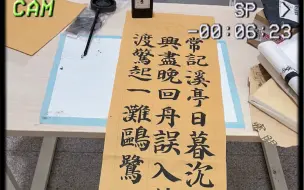 CAM
SP
-00:06:23
常記溪亭日暮沈
興盡晚回舟誤入
渡驚起一灘鷗鷺